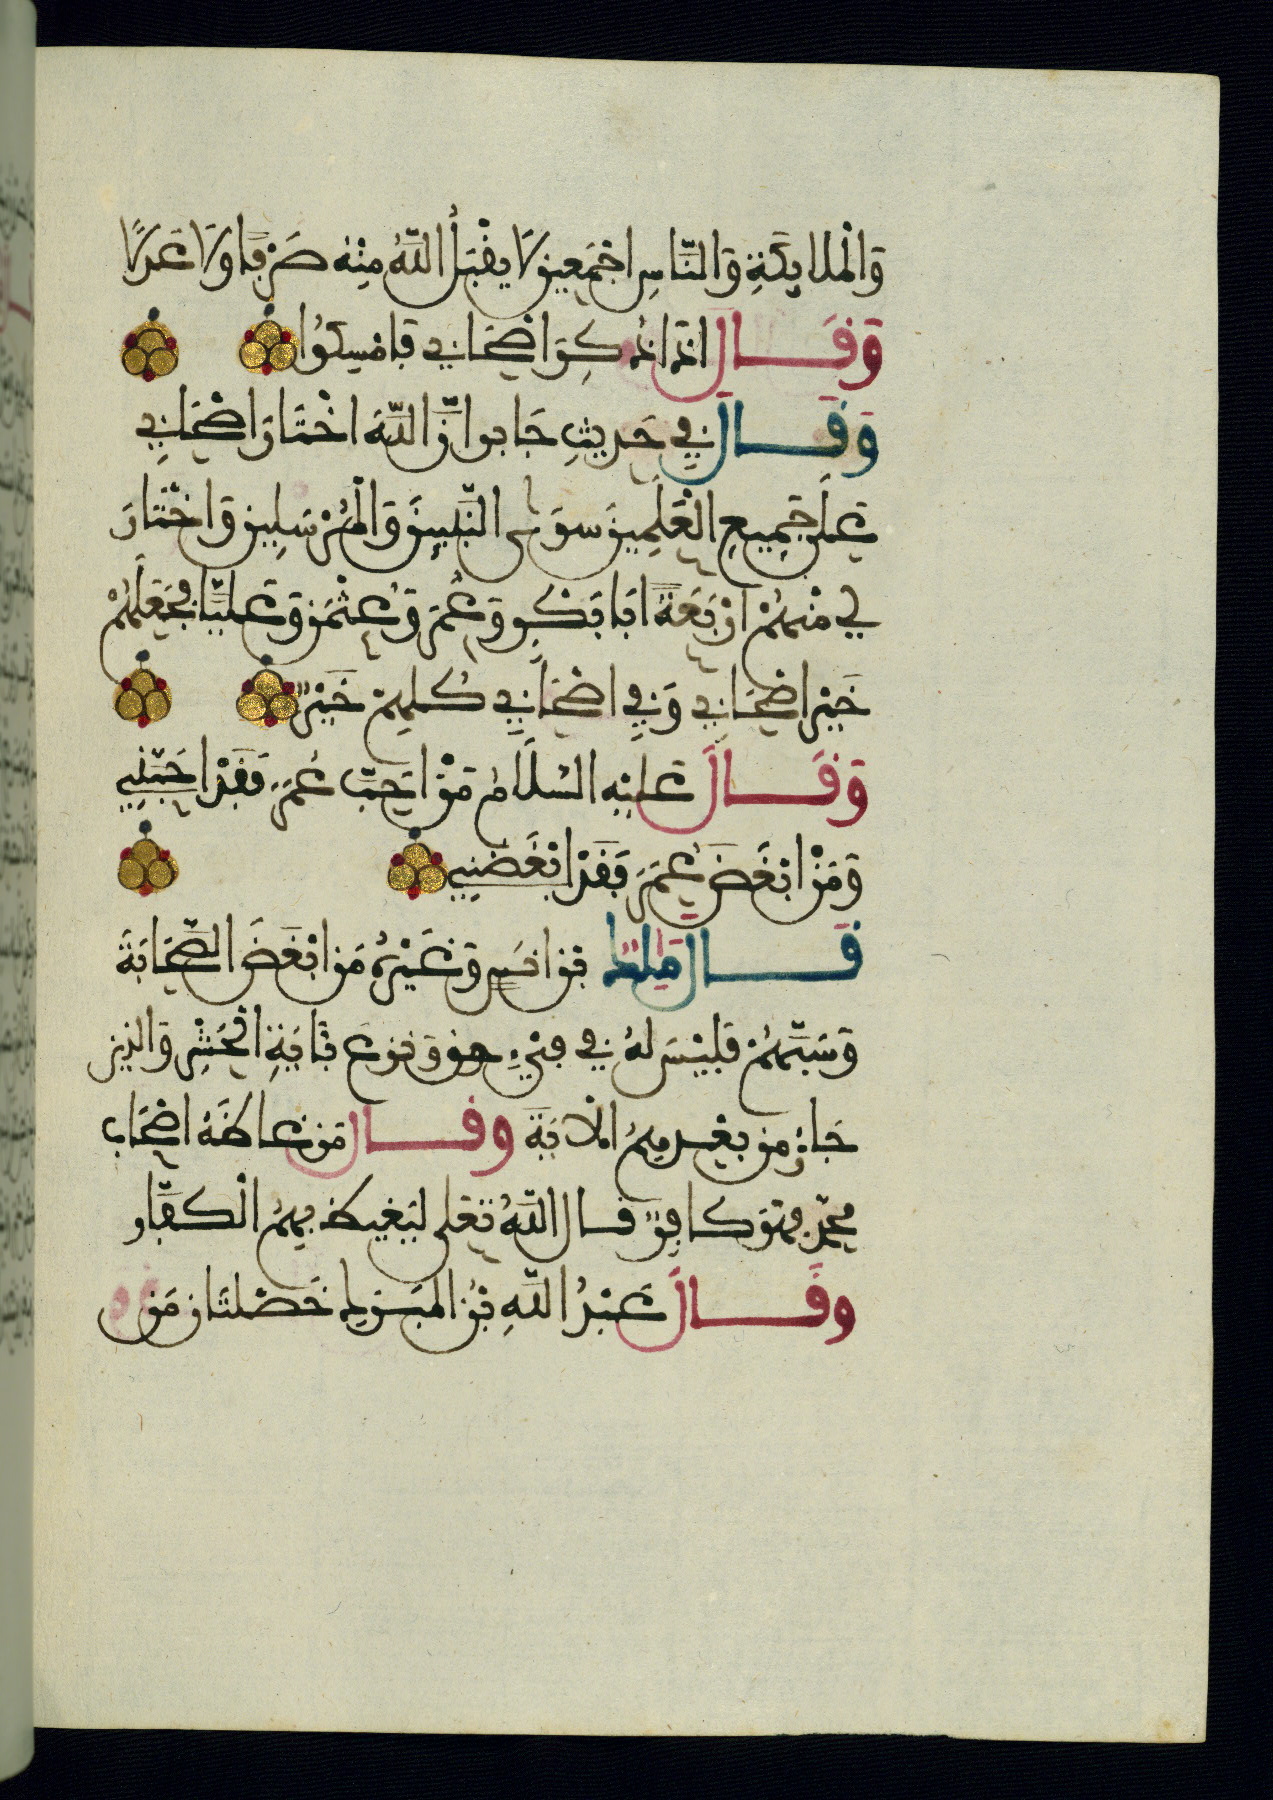 وَالْملايِكَةِ وَالنَّاسِ اجْمَعِينَ لَا يقْبَلُ اللَّهُ مِنْه صَرْفًا وَلَا عَدلًا
وَقَال اذا ذكِرَ اصْحَابي فَامْسِكُوا
وَقَال في حَديثِ جَابر انَّ اللَّهَ اخْتَارَ اصْحَابي
عَلَى جَمِيعِ الْعَلَمِينَ سوَى النَّبِيينَ وَالْمُرْسَلِين وَاخْتَارَ
لي مْنهمُ ارْبَعَةً ابَا بَكْرٍ وَعُمَرَ وَعُثْمَن وَعَلِيّا فجَعَلَهُمْ
خَيْرَ اصْحَابي وَفِي اصْحَابي كُلهِمْ خَيْرٌ
وَقَالَ عَليْهِ السَّلَام مَنْ احَبَّ عُمَرَ فَقَدْ احَبَّنِي
وَمَنْ ابْغَضَ عُمَرَ فَقَدْ ابْغَضَنِي
قَال مَالِكُ بْن انَسٍ وَغَيْرُهُ مَن ابْغَضَ الصَّحَابَةَ
وَسَبَّهُمْ فَلَيْسَ لهُ في فيْءِ حق وَنزعَ بَآيَةِ الْحَشْرِ وَالذِين
جَاءُو من بعْدهِمُ الْايَةَ وقال مَن غَاظَهُ اصْحَاب
محَمّد فهْوَ كافرٌ قال اللَّهُ تعَلَى ليَغِيظ بهمُ الْكفَّار
وَقَالَ عَبْدُ اللَّهِ بْنُ الْمبَارَكِ خَصْلتَان مَن